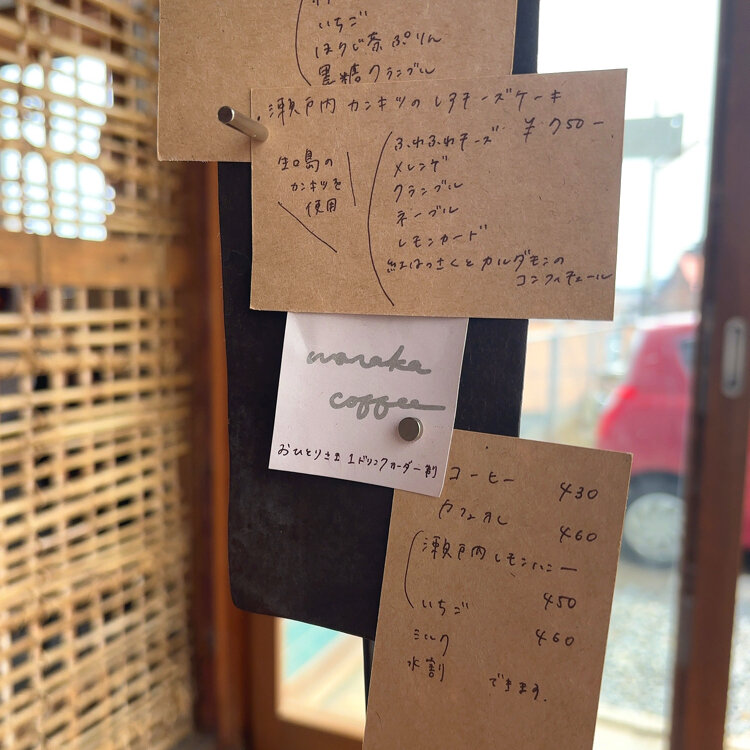 いちご
ほうじ茶ぷりん
黒糖クランブル
瀬戸内カンキツのレアチーズケーキ
¥750-
生口島の
カンキツを
使用
ふわふわチーズ
メレンゲ
クランブル
ネーブル
レモンカード
紅はっさくとカルダモンの
コンフィチュール
waraka
coffee
おひとりさま1ドリンクオーダー制
コーヒー 430
カフェオレ 460
瀬戸内レモンハニー
450
いちご
ミルク 460
水割 できます.